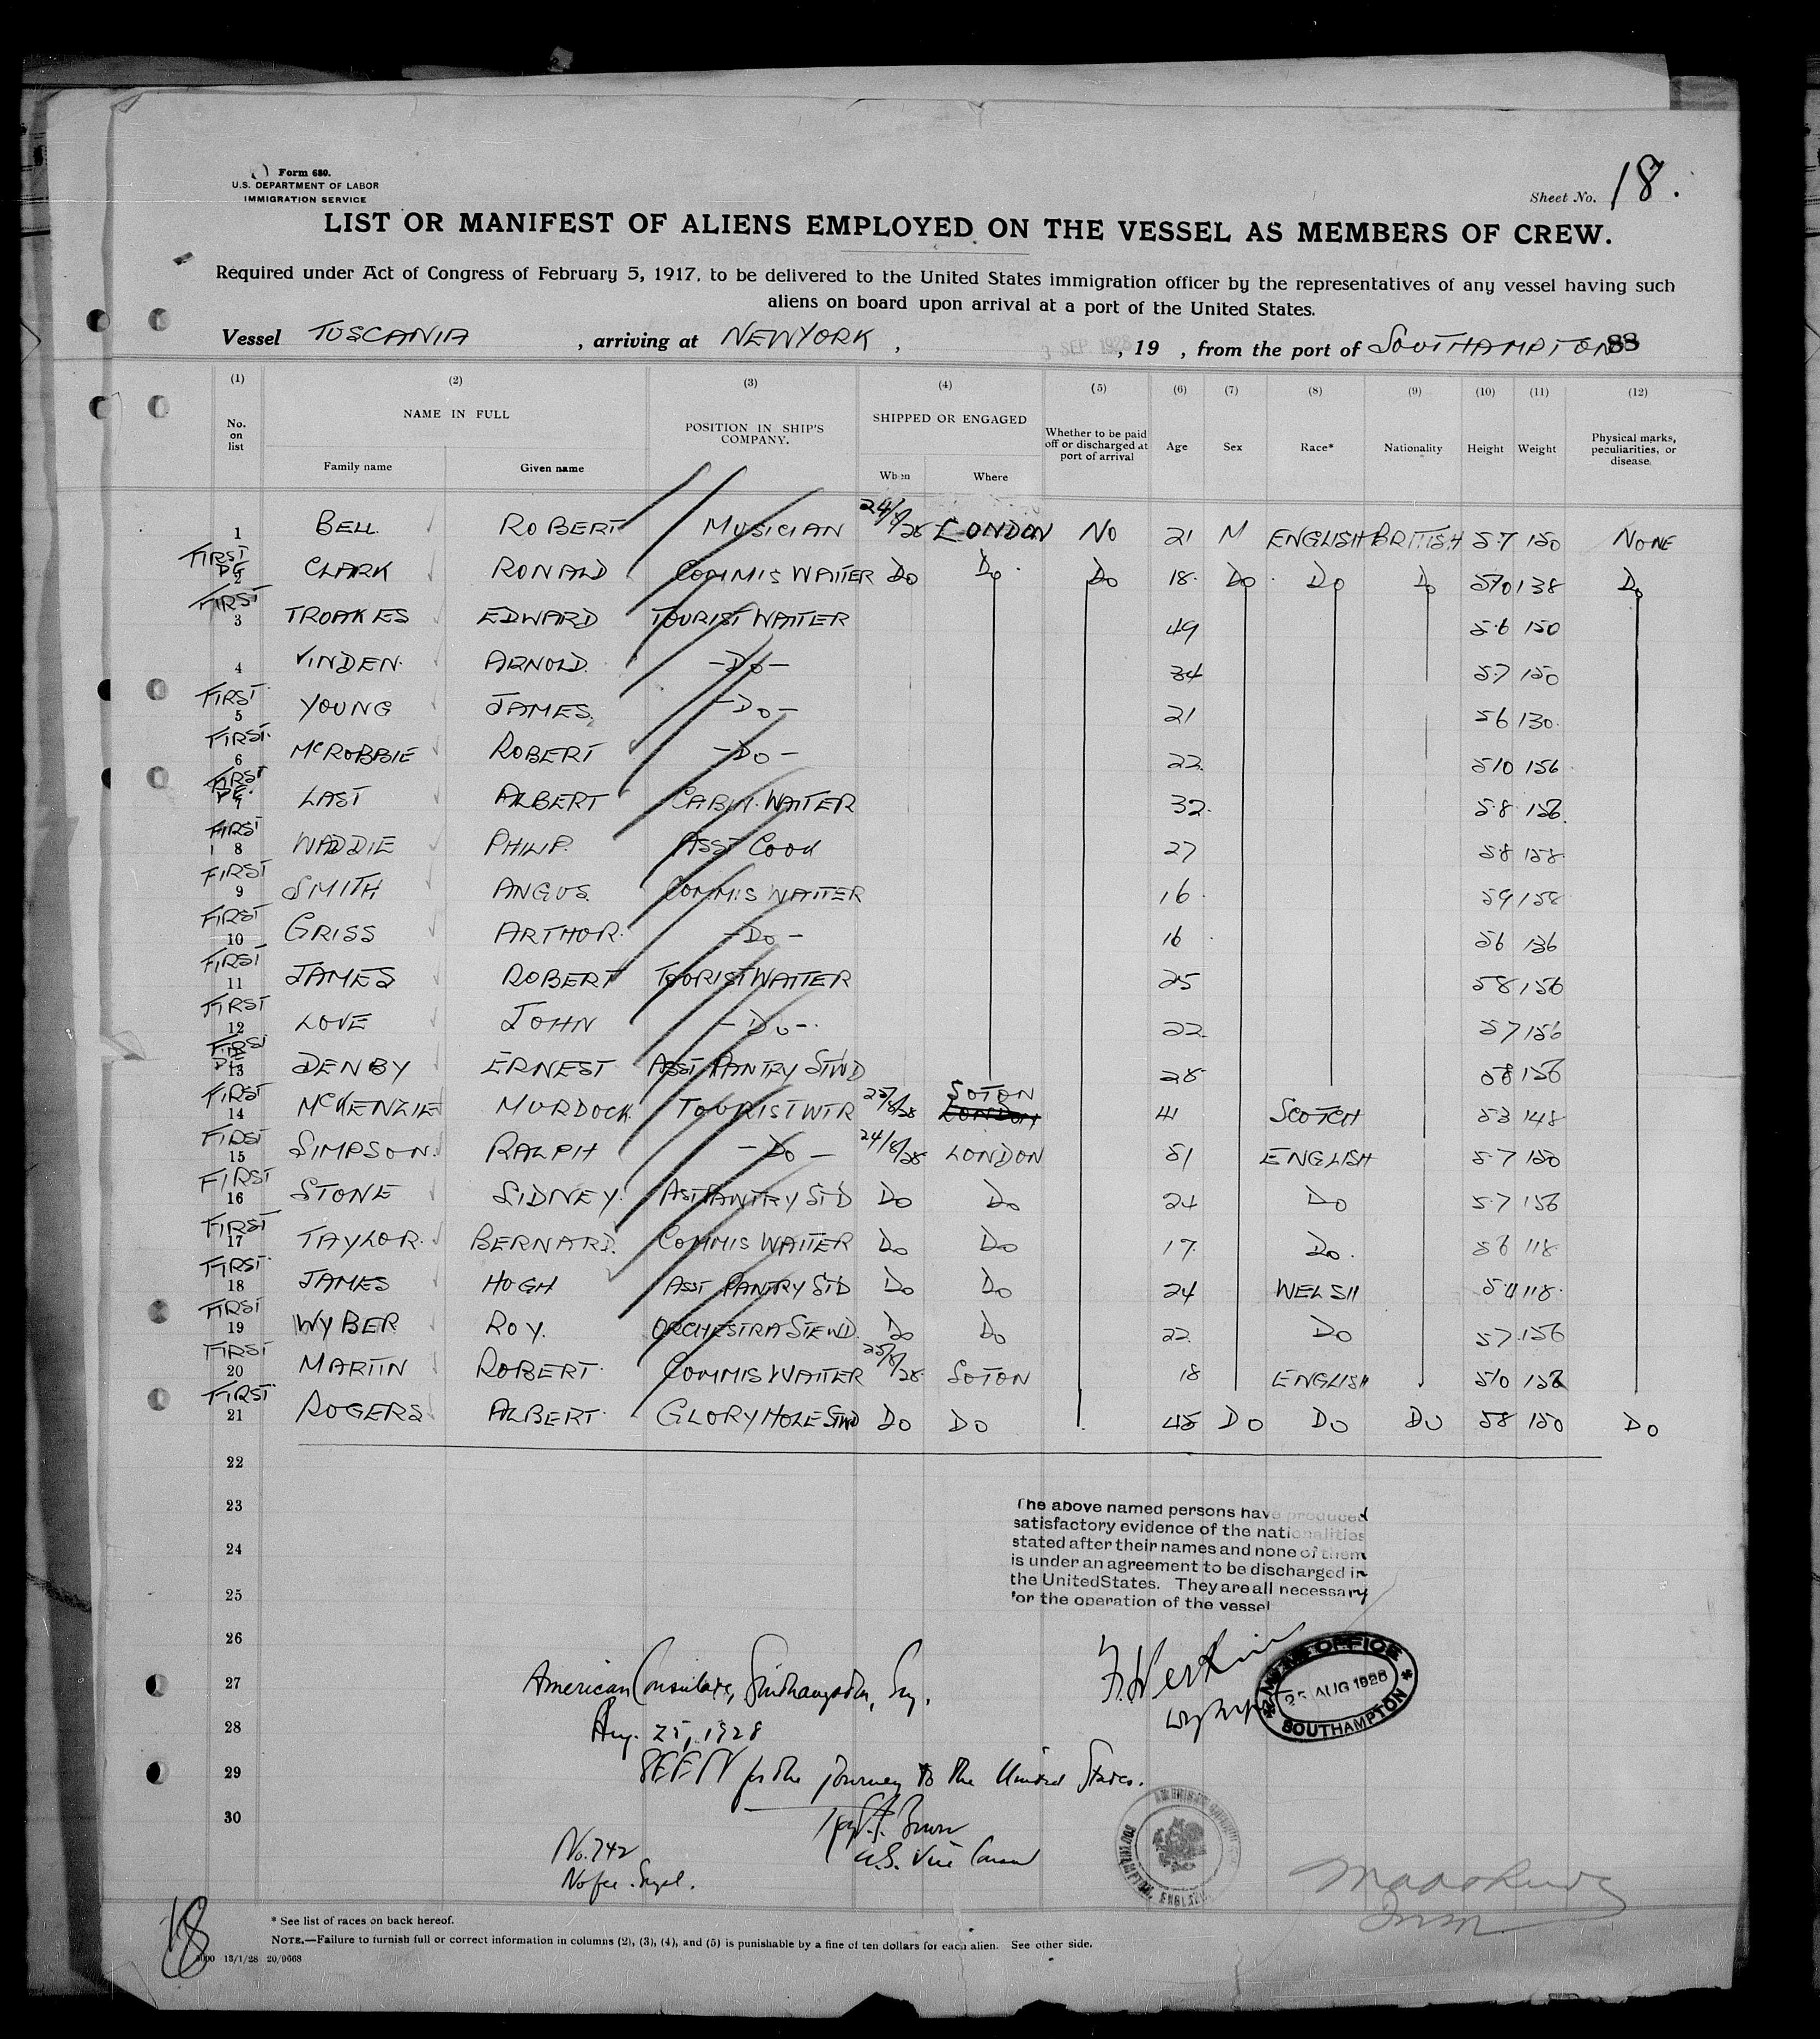 Form 680.
U.S. DEPARTMENT OF LABOR
IMMIGRATION SERVICE
Sheet No. 18.
LIST OR MANIFEST OF ALIENS EMPLOYED ON THE VESSEL AS MEMBERS OF CREW.
Required under Act of Congress of February 5, 1917, to be delivered to the United States immigration officer by the representatives of any vessel having such
aliens on board upon arrival at a port of the United States.
Vessel TUSCANIA, arriving at NEW YORK, 3 SEP 1928, 19 , from the port of SOUTHAMPTON 88
(1) (2) (3) (4) (5) (6) (7) (8) (9) (10) (11) (12)
No. on list NAME IN FULL Family name Given name POSITION IN SHIP'S COMPANY. SHIPPED OR ENGAGED When Where Whether to be paid off or discharged at port of arrival Age Sex Race* Nationality Height Weight Physical marks, peculiarities, or disease.
1 BELL ROBERT MUSICIAN 24/8/28 LONDON NO 21 M ENGLISH BRITISH 5.7 150 NONE
FIRST 2 CLARK RONALD COMMIS WAITER DO DO DO 18 DO DO DO 510 138 DO
FIRST 3 TROAKES EDWARD TOURIST WAITER 49 5.6 150
4 VINDEN ARNOLD. -DO- 34 5.7 150
FIRST 5 YOUNG JAMES. -DO- 21 56 130
FIRST 6 McROBBIE ROBERT -DO- 22 510 156
FIRST 7 LAST ALBERT CABIN WAITER 32 5.8
FIRST 8 WADDIE PHILIP. ASST COOK 27 58 158
FIRST 9 SMITH ANGUS. COMMIS WAITER 16 59 158
FIRST 10 GRISS ARTHUR. -DO- 16 56 136
FIRST 11 JAMES ROBERT TOURIST WAITER 25 58 156
FIRST 12 LOVE JOHN -DO- 22 57 156
FIRST 13 DENBY ERNEST ASST PANTRY STWD 28 58 156
FIRST 14 McKENZIE MURDOCK TOURIST WTR 25/8/28 SOTON LONDON 41 SCOTCH 53 148
FIRST 15 SIMPSON. RALPH -DO- 24/8/28 LONDON 51 ENGLISH 5.7 150
FIRST 16 STONE SIDNEY. AST PANTRY STD DO DO 24 DO 5.7 156
FIRST 17 TAYLOR. BERNARD. COMMIS WAITER DO DO 17 DO. 56 118
FIRST 18 JAMES HUGH ASST PANTRY STD DO DO 24 WELSH 118
FIRST 19 WYBER ROY. ORCHESTRA STEWD. DO DO 22 DO 57 156
FIRST 20 MARTIN ROBERT. COMMIS WAITER 25/8/28 SOTON 18 ENGLISH 510
FIRST 21 ROGERS ALBERT. GLORY HOLE STWD DO DO 45 DO DO DO 58 150 DO
22
23
24
25
26
27
28
29
30
The above named persons have produced
satisfactory evidence of the nationalities
stated after their names and none of them
is under an agreement to be discharged in
the United States. They are all necessary
for the operation of the vessel
OFFICE
25 AUG 1928
SOUTHAMPTON
American Consulate, Southampton, Eng.
Aug. 25, 1928
SEEN for the journey to the United States.
Brown
U.S. Vice Consul
No. 742
No fee
SOUTHAMPTON, ENGLAND
18
* See list of races on back hereof.
NOTE.—Failure to furnish full or correct information in columns (2), (3), (4), and (5) is punishable by a fine of ten dollars for each alien. See other side.
13/1/28 20/9668